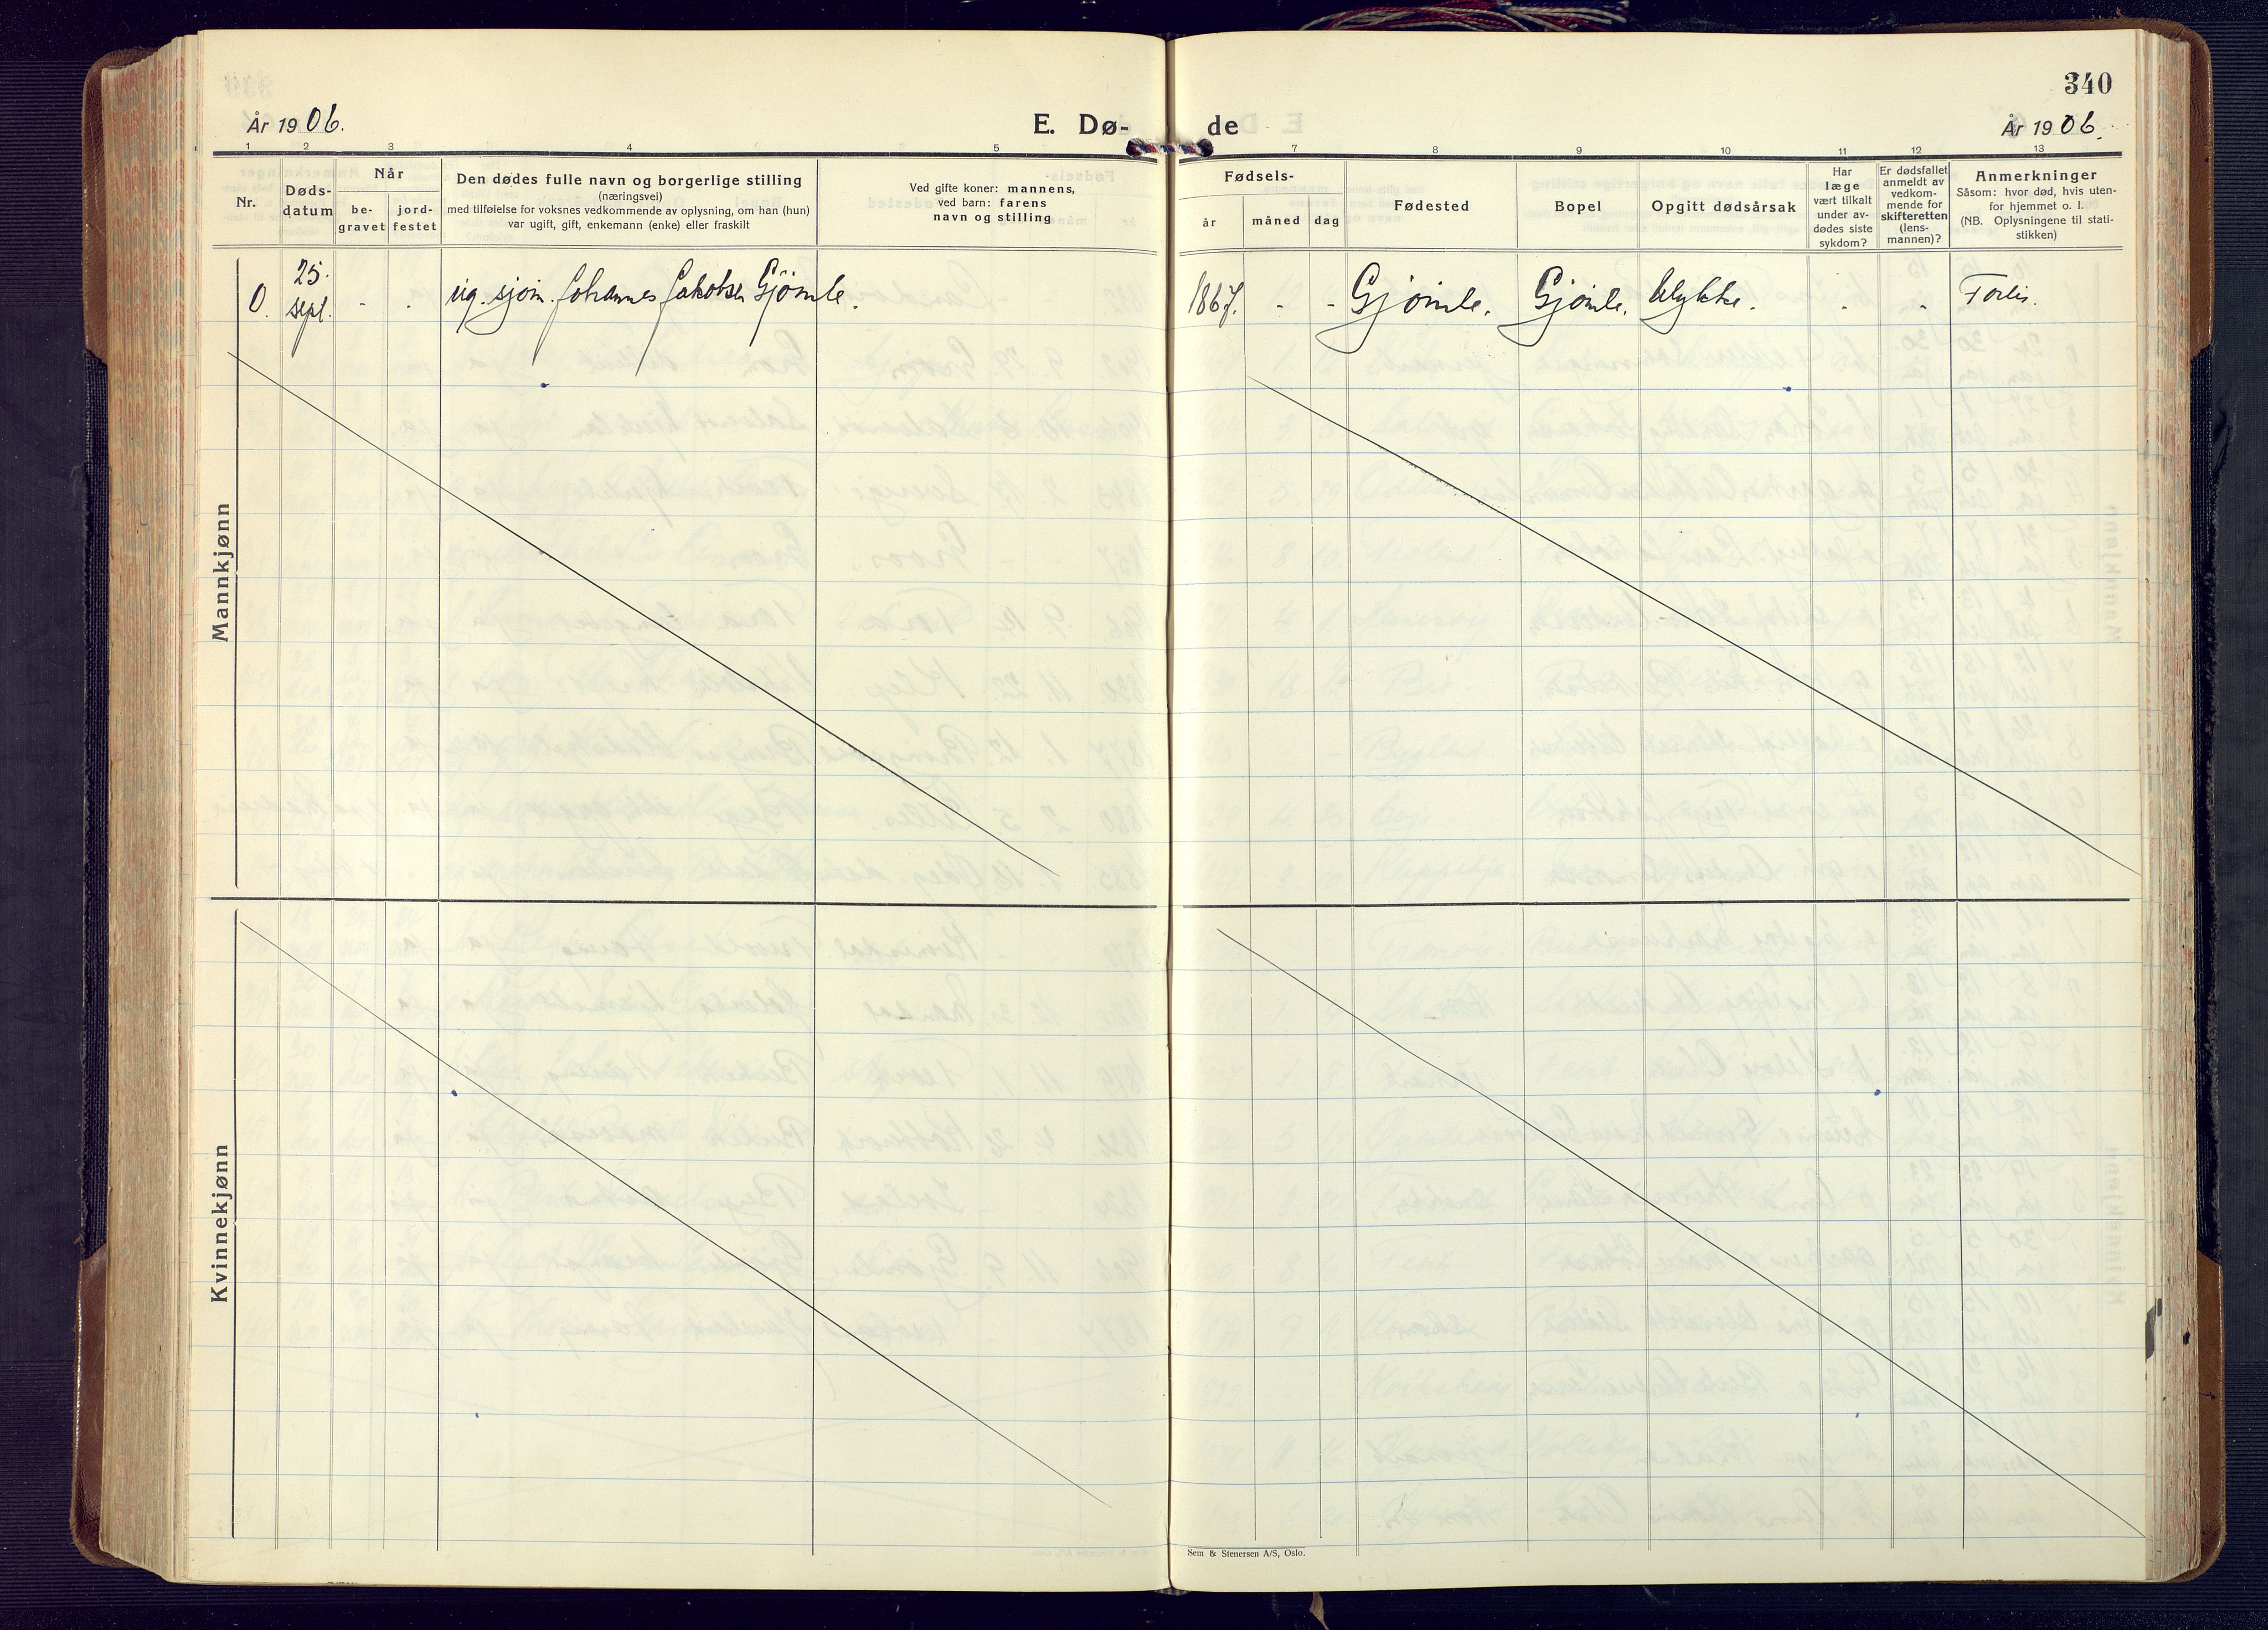 340
År 1906.
E. Dø-
de
År 1906.
1 2 3 4 5
7 8 9 10 11 12 13
Nr.
Døds-
datum
Når
be-
gravet
jord-
festet
Den dødes fulle navn og borgerlige stilling
(næringsvei)
med tilføielse for voksnes vedkommende av oplysning, om han (hun)
var ugift, gift, enkemann (enke) eller fraskilt
Ved gifte koner: mannens,
ved barn: farens
navn og stilling
Fødsels-
år
måned
dag
Fødested
Bopel
Opgitt dødsårsak
Har
læge
vært tilkalt
under av-
dødes siste
sykdom?
Er dødsfallet
anmeldt av
vedkom-
mende for
skifteretten
(lens-
mannen)?
Anmerkninger
Såsom: hvor død, hvis uten-
for hjemmet o. l.
(NB. Oplysningene til stati-
stikken)
Mannkjønn
0.
25.
sept.
- .
ug. sjøm. Johannes Jakobsen Gjömle.
1867. - - Gjömle. Gjömle. Ulykke. . . Forlis.
Kvinnekjønn
Sem & Stenersen A/S, Oslo.